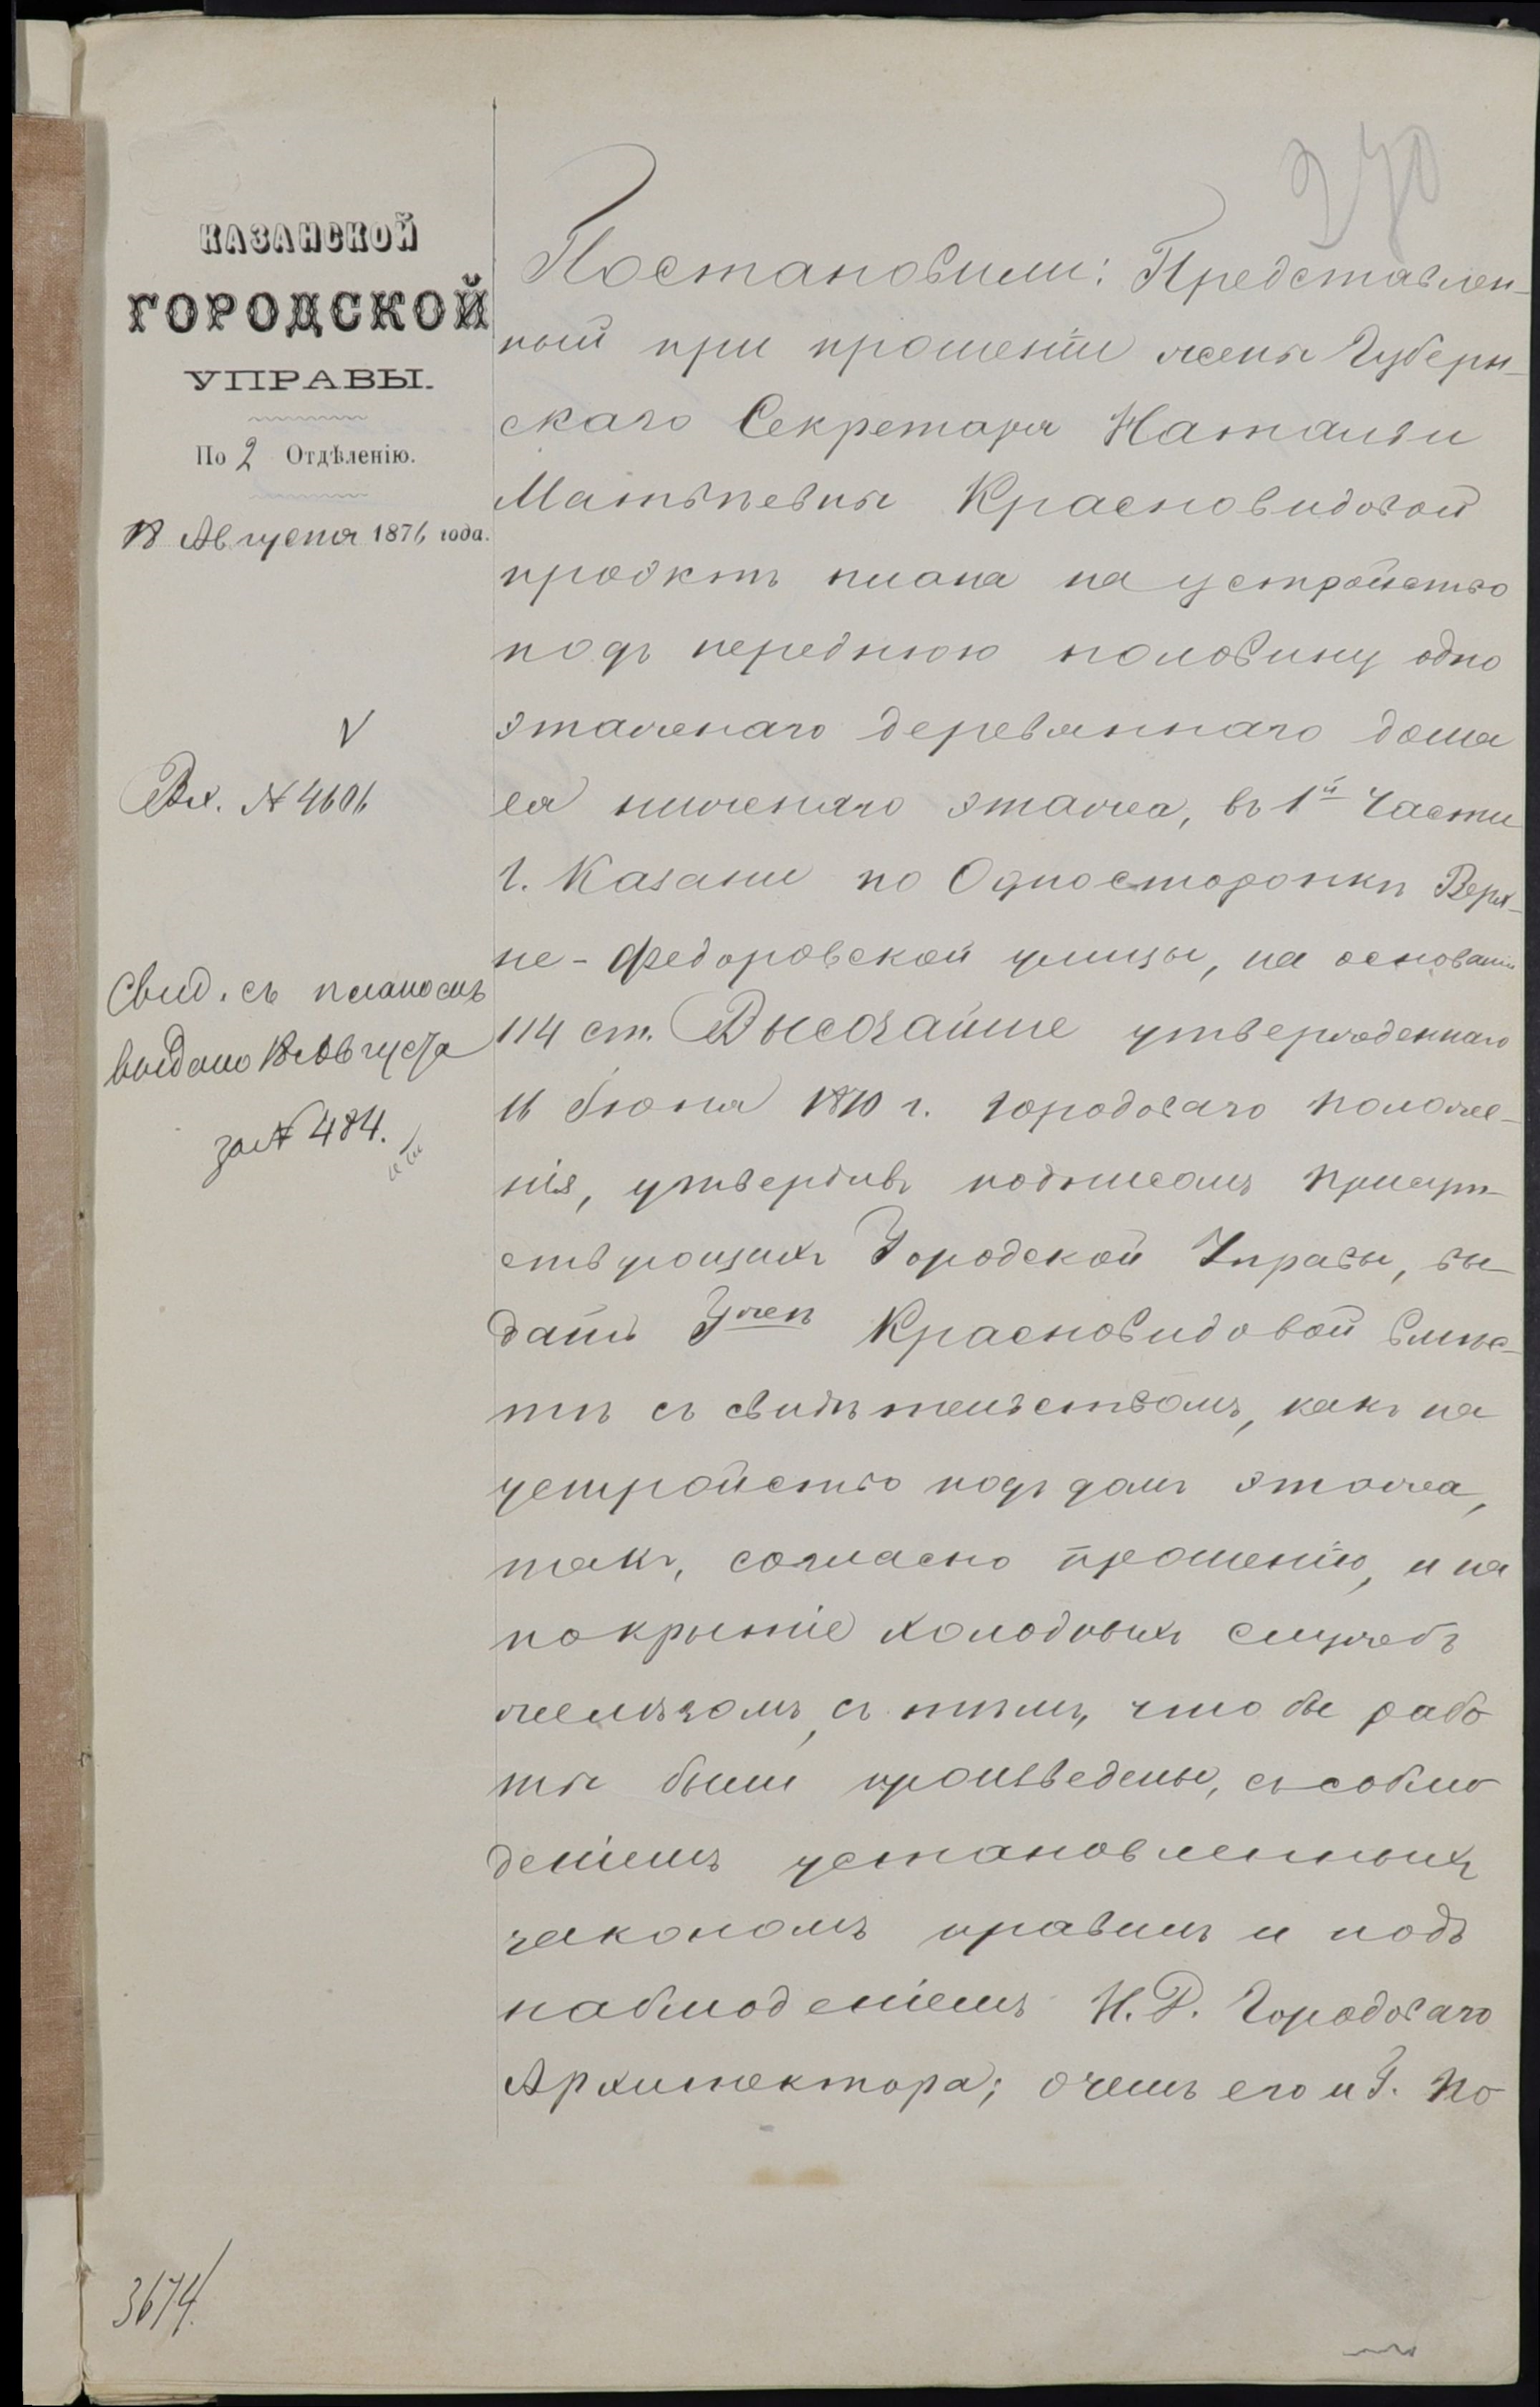 270
КАЗАНСКОЙ
ГОРОДСКОЙ
УПРАВЫ.
По 2 Отдѣленію.
18 Августа 1876 года.
Вх. № 4606
Свид. съ планомъ
выдано 18 Августа
за № 484.
3674.
Постановили: Представлен-
ный при прошеніи жены Губерн-
скаго Секретаря Наталіи
Матвѣевны Красновидовой
проэктъ плана на устройство
подъ переднюю половину одно
этажнаго деревяннаго дома
ея нижняго этажа, въ 1й Части
г. Казани по Односторонкѣ Верх-
не-Федоровской улицы, на основаніи
114 ст. Высочайше утвержденнаго
16 Іюня 1870 г. Городоваго положе-
нія, утвердивъ подписомъ присут-
ствующихъ Городской Управы, вы-
дать Гжѣ Красновидовой вмѣс-
тѣ съ свидѣтельствомъ, какъ на
устройство подъ домъ этажа,
такъ, согласно прошенію, и на
покрытіе холодныхъ службъ
желѣзомъ, съ тѣмъ, что бы рабо
ты были произведены, съ соблю
деніемъ установленныхъ
закономъ правилъ и подъ
наблюденіемъ И.Д. Городоваго
Архитектора; о чемъ его и Г. По